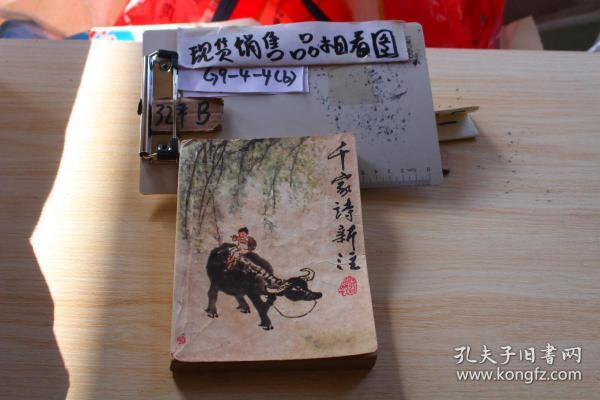 现货销售品相看图
G9-4-4(b)
32开B
千家诗新注
孔夫子旧书网
www.kongfz.com